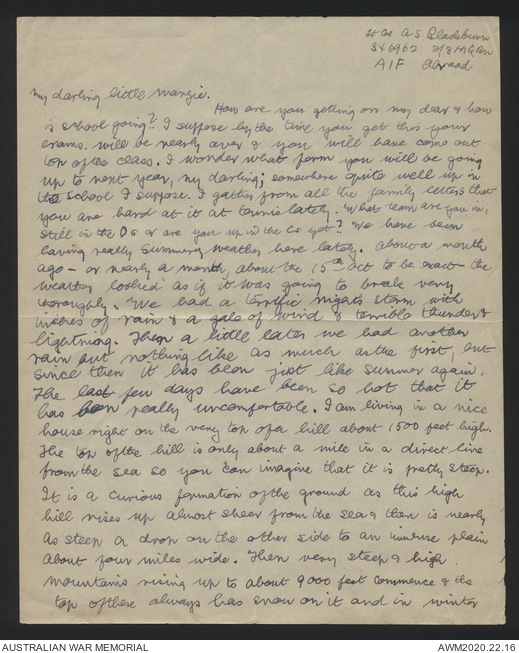 Lt Col A S Blackburn
SX6962 2/3 M G Bn
AIF Abroad
My darling little Margie.
How are you getting on my dear & how
is school going? I suppose by the time you get this your
exams. will be nearly over & you will have come out
top of the class. I wonder what form you will be going
up to next year, my darling; somewhere quite well up in
the school I suppose. I gather from all the family letters that
you are hard at it at tennis lately. What team are you in,
still in the Ds or are you up in the Cs yet? We have been
having really summery weather here lately. About a month
ago - or nearly a month, about the 15th Oct to be exact - the
weather looked as if it was going to break very
thoroughly. We had a terrific nights storm with
inches of rain & a gale of wind & terrible thunder &
lightning. Then a little later we had another
rain but nothing like as much as the first, but
since then it has been just like summer again.
The last few days have been so hot that it
has been really uncomfortable. I am living in a nice
house right on the very top of a hill about 1500 feet high.
The top of the hill is only about a mile in a direct line
from the sea so you can imagine that it is pretty steep.
It is a curious formation of the ground as this high
hill rises up almost sheer from the sea & then is nearly
as steep a drop on the other side to an immense plain
about four miles wide. Then very steep & high
mountains rising up to about 9000 feet commence & the
top of these always has snow on it and in winter
AUSTRALIAN WAR MEMORIAL
AWM2020.22.16